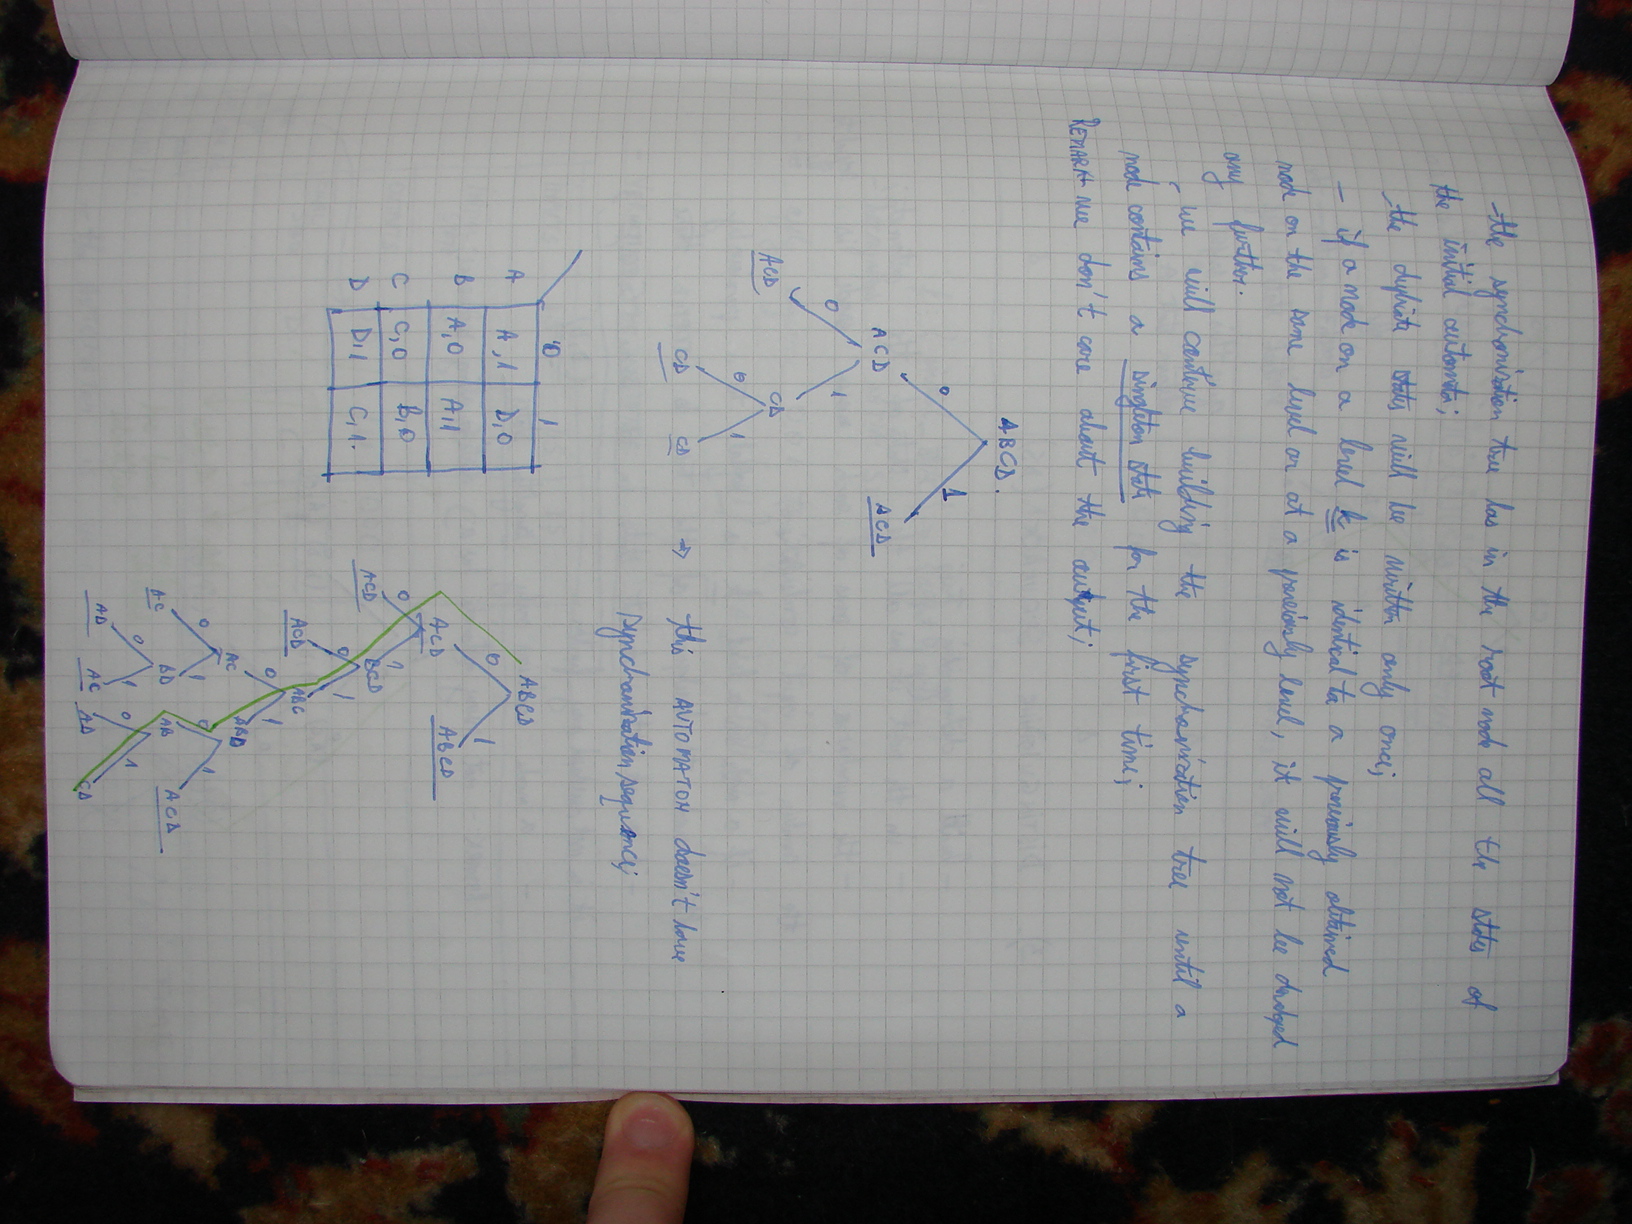 - the synchronisation tree has in the root node all the states of
the initial automata;
- the duplicate states will be written only once;
- if a node on a level k is identical to a previously obtained
node on the same level or at a previously level, it will not be
any further.
- we will continue building the synchronisation tree until a
node contains a singleton state for the first time;
REMARK we don't care about the output;
ABCD.
0 1
ACD ACD
0 1
ACD CD
0 1
CD CD
⇒ this AUTOMATON doesn't have
Synchronisation sequence;
0 1
A A,1 D,0
B A,0 A,1
C C,0 B,0
D D,1 C,1.
ABCD
0 1
ACD ABCD
0 1
ACD BCD
0 1
ACD ABC
0 1
AC ABD
0 1 0 1
AC BD AB ACD
0 1 0 1
AD AC AD CD